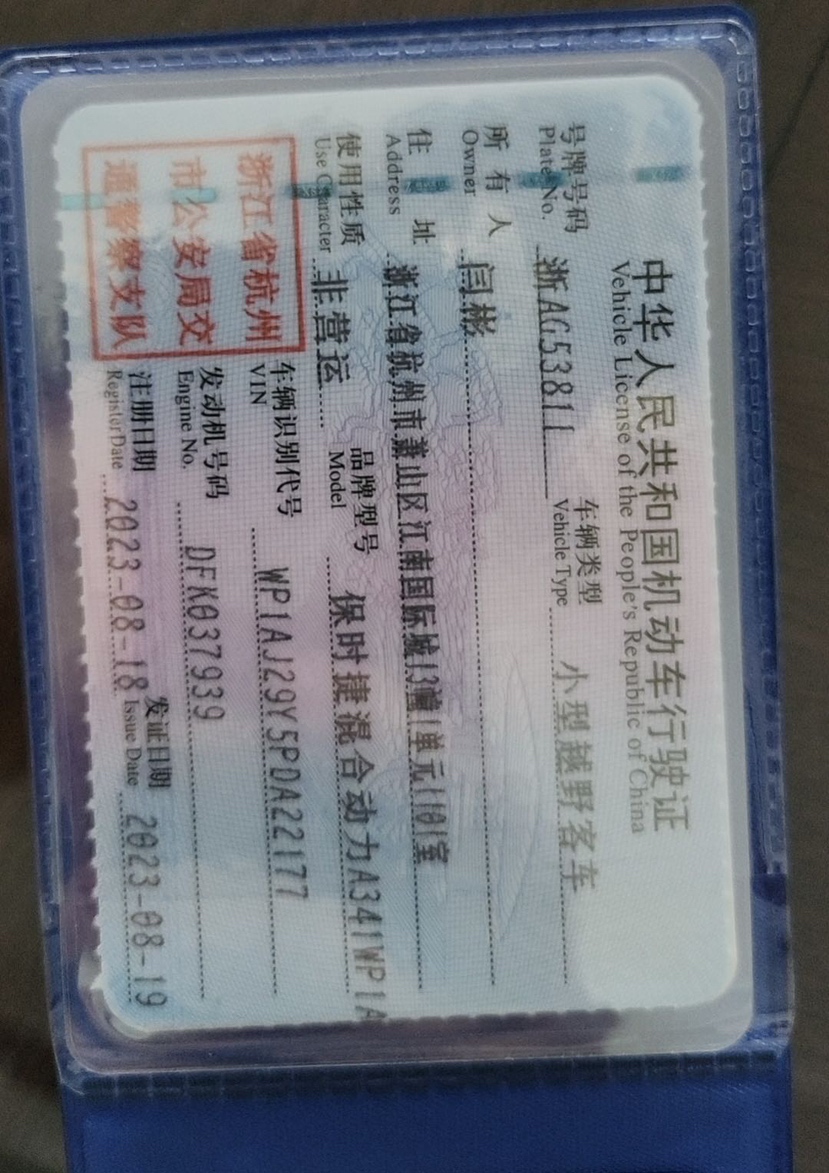 中华人民共和国机动车行驶证
Vehicle License of the People's Republic of China
号牌号码 浙AG53811 车辆类型 小型越野客车
Plate No. Vehicle Type
所有人 闫彬
Owner
住址 浙江省杭州市萧山区江南国际城13幢1单元1101室
Address
使用性质 非营运 品牌型号 保时捷混合动力A341WP1A
Use Character Model
浙江省杭州
市公安局交
通警察支队
车辆识别代号 WP1AJ29Y5PDA22177
VIN
发动机号码 DFK037939
Engine No.
注册日期 2023-08-18 发证日期 2023-08-19
Register Date Issue Date